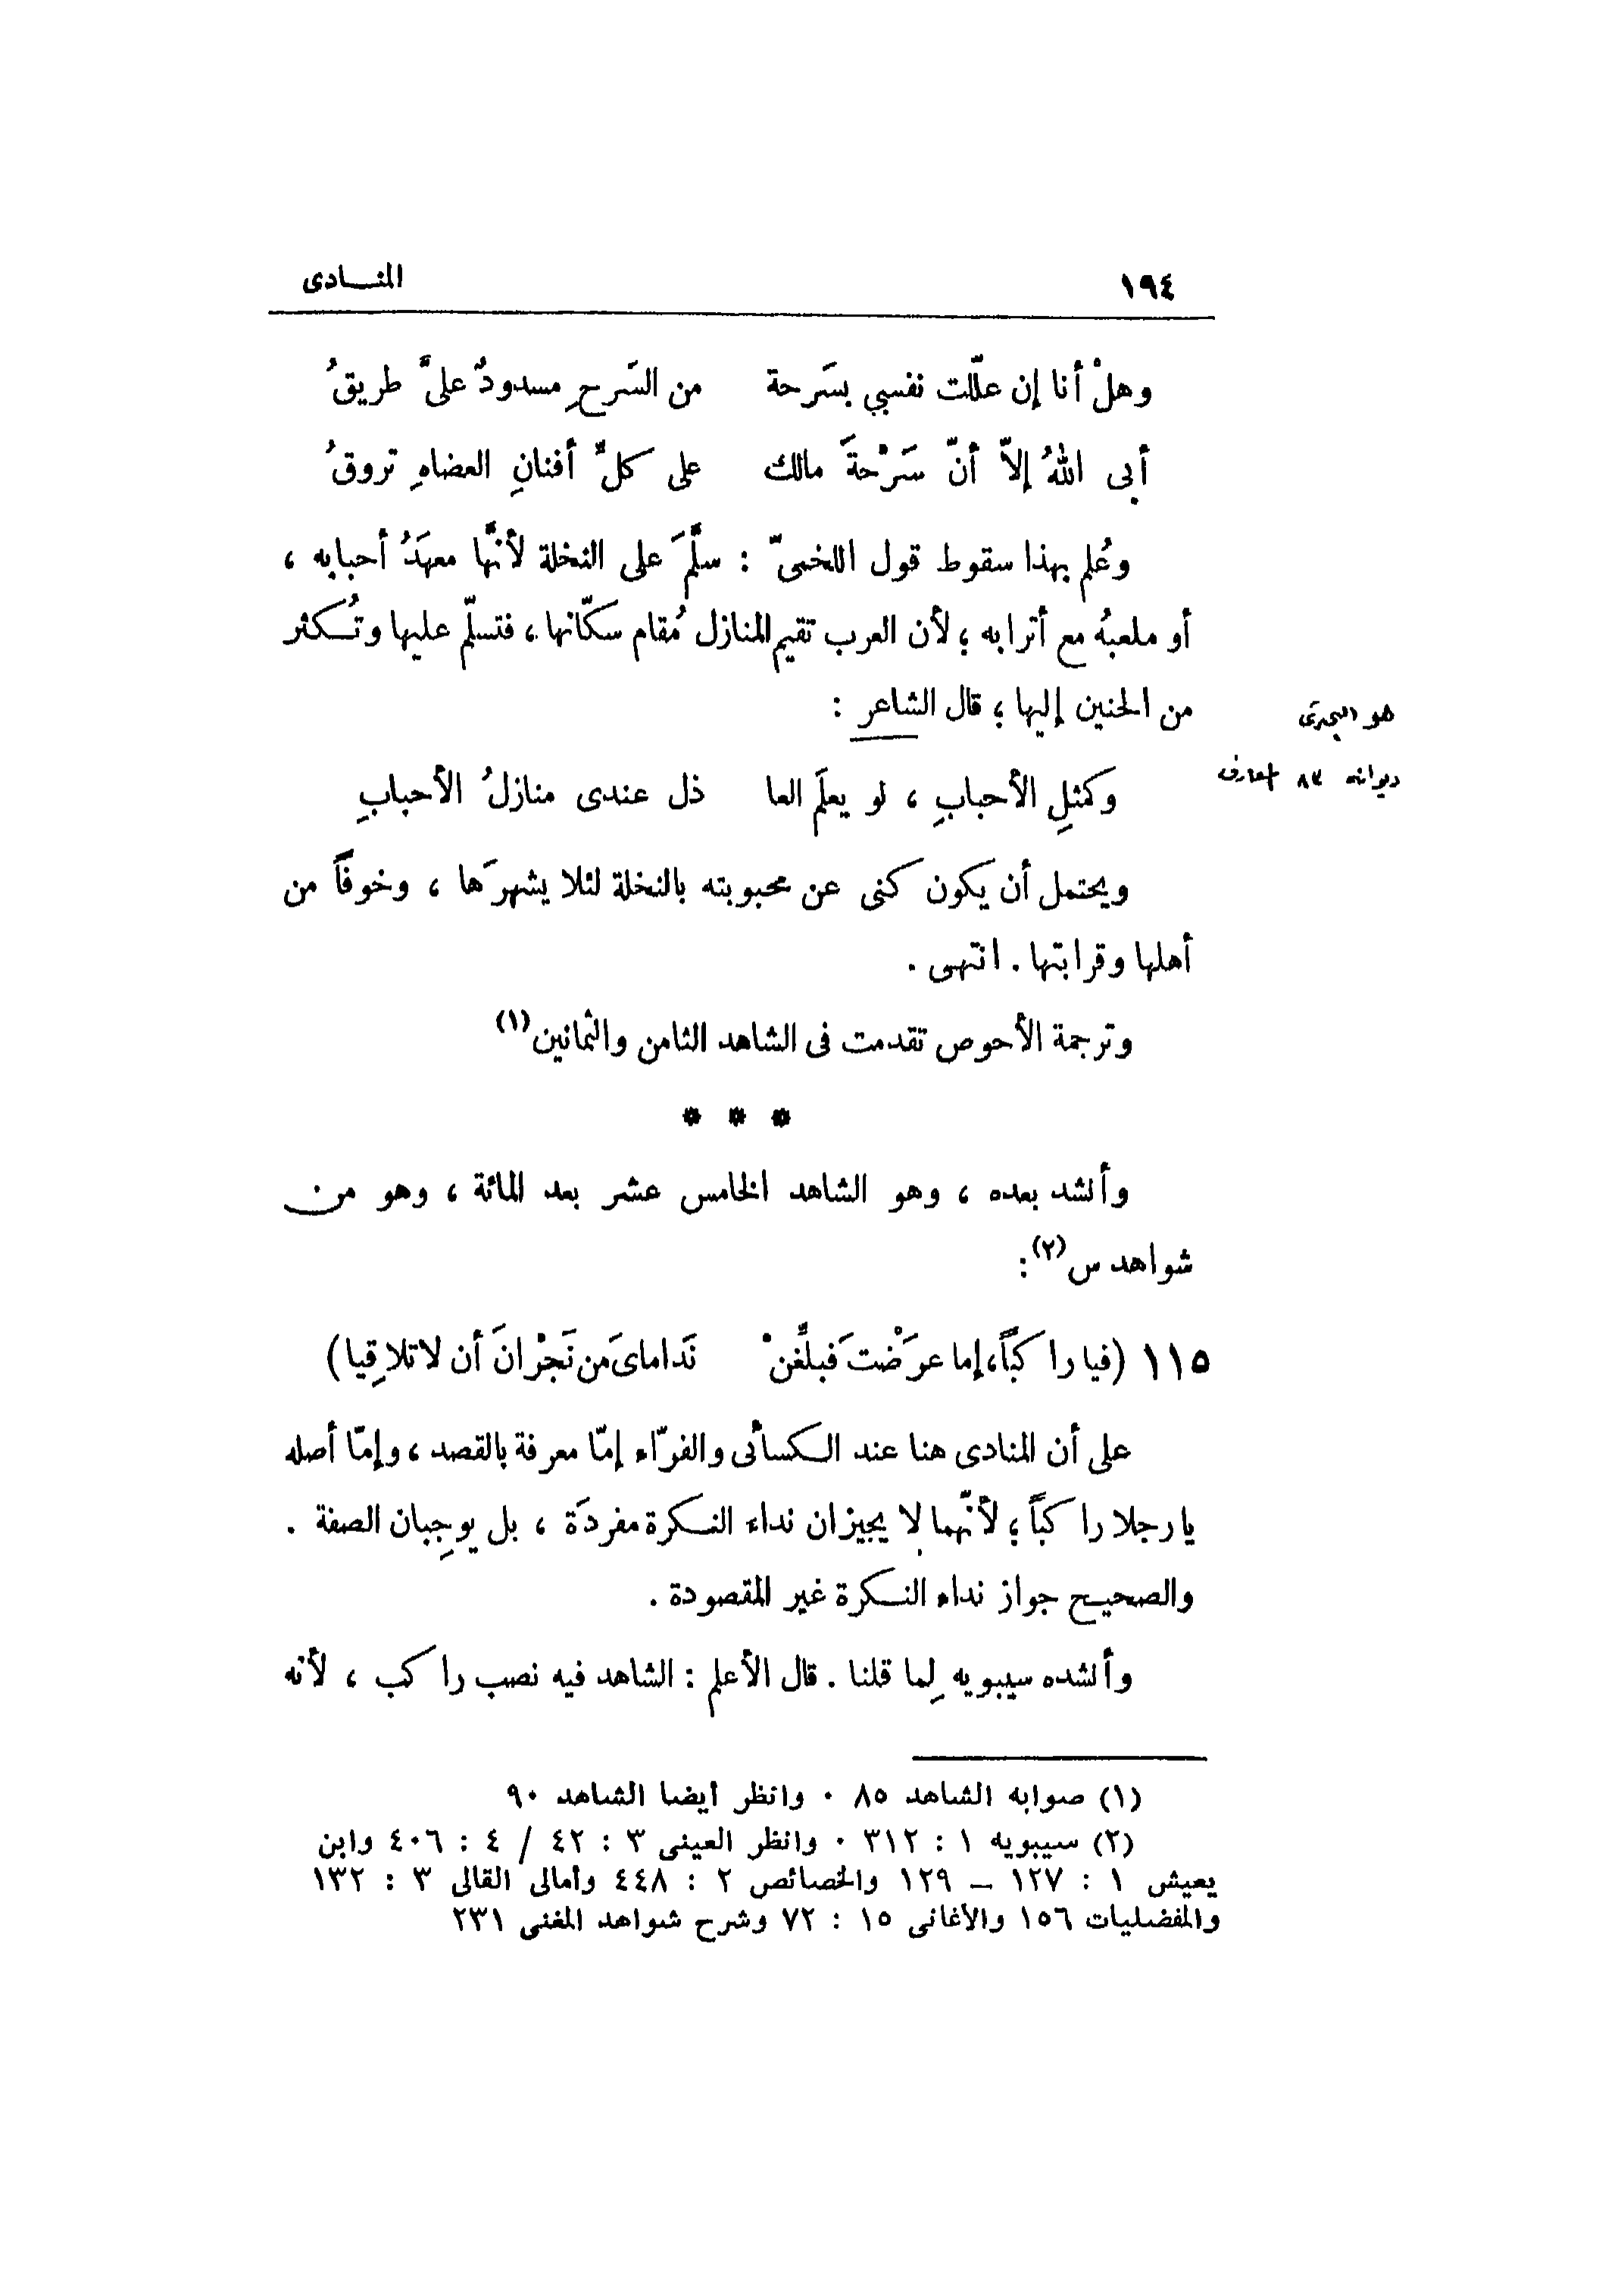 ١٩٤ المنادى
وهلْ أنا إن علّلت نفسي بسَرحة من السَرحِ مسدودٌ علىَّ طريقُ
أبى اللهُ إلاّ أنّ سَرْحةَ مالك على كلِّ أفنانِ العضاهِ تروقُ
وعُلم بهذا سقوط قول اللخمىّ : سلَّمَ على النخلة لأنَّها معهَدُ أحبابه ،
أو ملعبُه مع أترابه ؛ لأن العرب تقيم المنازل مُقام سكّانها ، فتسلّم عليها وتُكثر
من الحنين إليها ؛ قال الشاعر :
هو البحترى
ديوانه ٨٣ المعارف
وكمثلِ الأحبابِ ، لو يعلَم العا ذل عندى منازلُ الأحبابِ
ويحتمل أن يكون كنى عن محبوبته بالنخلة لئلا يشهرَها ، وخوفًا من
أهلها وقرابتها . انتهى .
وترجمة الأحوص تقدمت فى الشاهد الثامن والثمانين(١)
* * *
وأنشد بعده ، وهو الشاهد الخامس عشر بعد المائة ، وهو من
شواهد س(٢) :
١١٥ (فيا راكبًا، إما عرَضْتَ فبلِّغنْ نَداماىَ من نَجْرانَ أن لا تلاقِيا)
على أن المنادى هنا عند الكسائى والفرّاء إمّا معرفة بالقصد ، وإمّا أصله
يا رجلا راكبًا ؛ لأنّهما لا يجيزان نداء النكرة مفردَة ، بل يوجِبان الصفة .
والصحيح جواز نداء النكرة غير المقصودة .
وأنشده سيبويه لِما قلنا . قال الأعلم : الشاهد فيه نصب راكب ، لأنه
(١) صوابه الشاهد ٨٥ . وانظر أيضا الشاهد ٩٠
(٢) سيبويه ١ : ٣١٢ . وانظر العينى ٣ : ٤٢ / ٤ : ٤٠٦ وابن
يعيش ١ : ١٢٧ – ١٢٩ والخصائص ٢ : ٤٤٨ وأمالى القالى ٣ : ١٣٢
والمفضليات ١٥٦ والأغانى ١٥ : ٧٢ وشرح شواهد المغنى ٢٣١